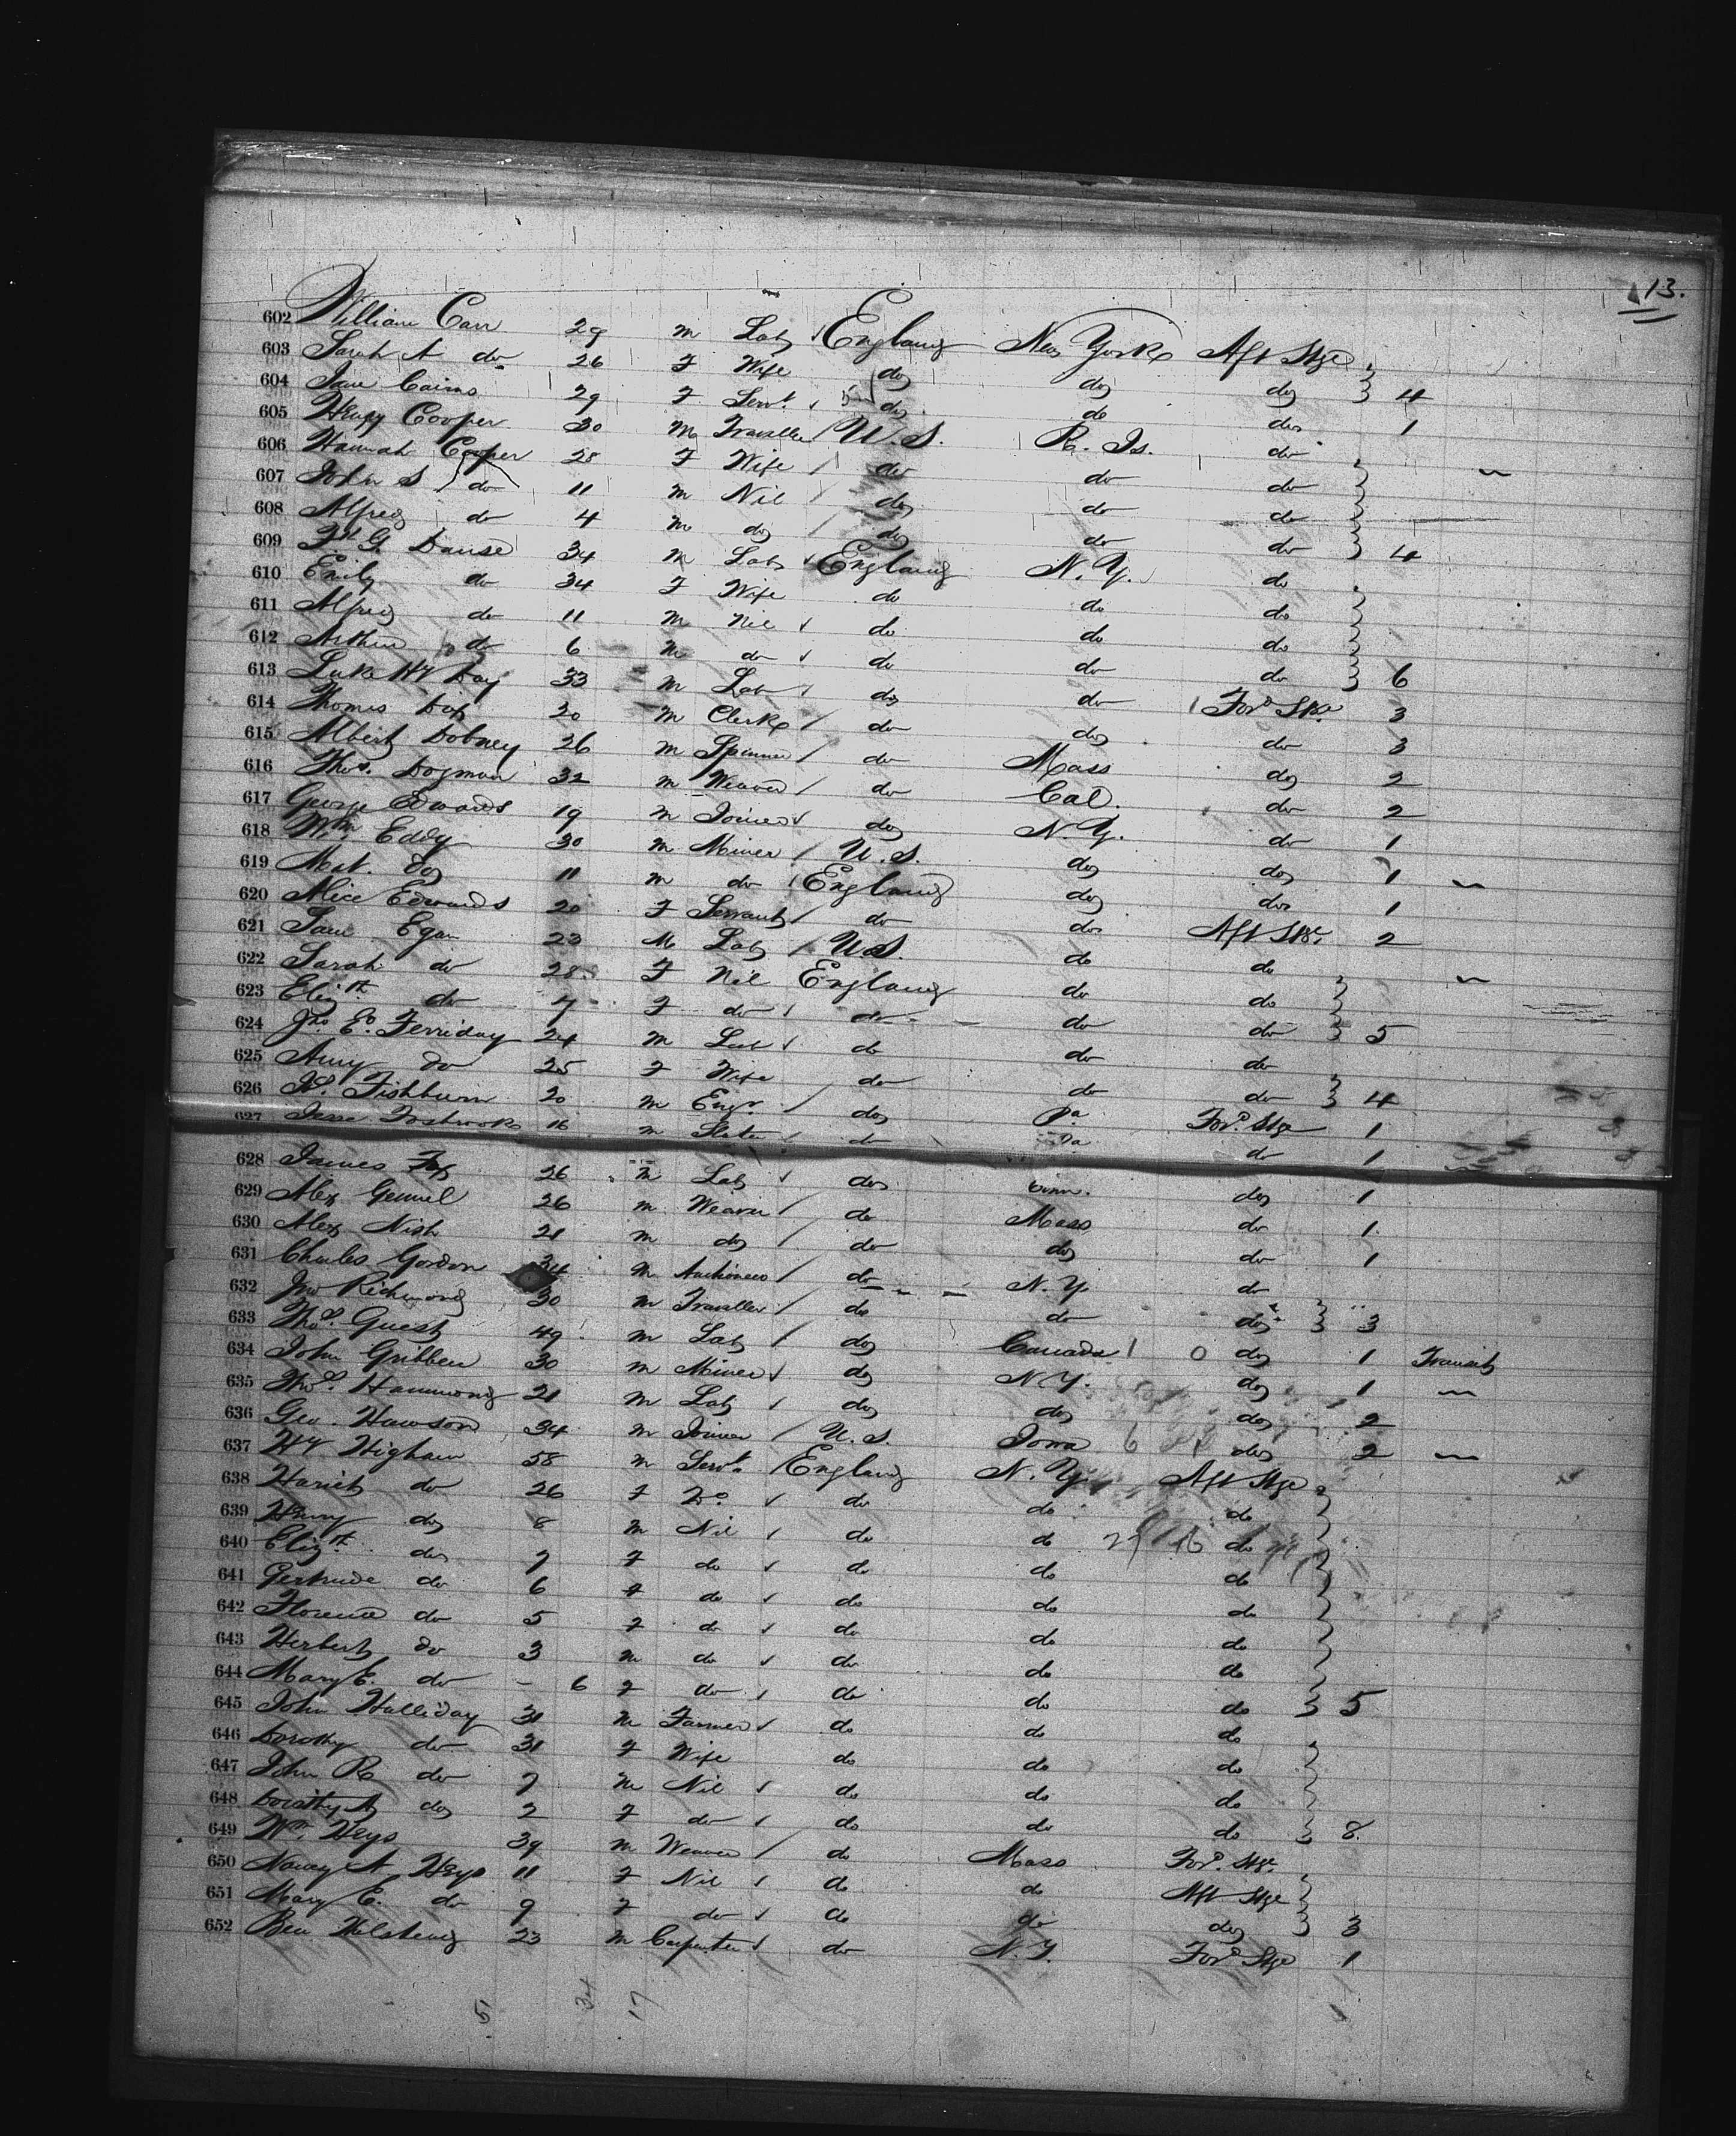 13.
602 William Carr 29 M Lab England New York Aft Stge
603 Sarah A do 26 F Wife do do do 4
604 Jane Cairns 29 F Servt do do do 1
605 Henry Cooper 30 M Traveller U.S. R. Is. do
606 Hannah Cooper 28 F Wife do do do
607 John S do 11 M Nil do do do
608 Alfred do 4 M do do do do 4
609 G. Danse 34 M Lab England N.Y. do
610 Emily do 34 F Wife do do do
611 Alfred do 11 M Nil do do do
612 Arthur do 6 M do do do do 6
613 Luke Hy Day 33 M Lab do do Ford Stge 3
614 Thomas 20 M Clerk do do do 3
615 Albert Dobney 26 M Spinner do Mass do 2
616 Thos. Dogman 32 M Weaver do Cal. do 2
617 George Edwards 19 M Joiner do N.Y. do 1
618 Wm Eddy 30 M Miner U.S. do do 1
619 Mat. do 11 M do England do do 1
620 Alice Edwards 20 F Servant do do Aft Stge 2
621 Egan 23 M Lab U.S. do do
622 Sarah do 28 F Nil England do do
623 Elizth do 7 F do do do do 5
624 Jno Ed. Ferriday 24 M Lab do do do
625 Amy do 25 F Wife do do do 4
626 Fishburn 20 M Engr. do Pa Ford Stge 1
627 Jesse 16 M Slater do Pa do 1
628 James Fox 26 M Lab do do 1
629 Alex Gemmel 26 M Weaver do Mass do 1
630 Alex Nish 21 M do do do do 1
631 Charles Gordon 34 M Auctioneer do N.Y. do
632 Jno Richmond 30 M Traveller do do do 3
633 Thos. Guest 49 M Lab do Canada 1 0 do 1 Transit
634 John Gribben 30 M Miner do N.Y. do 1
635 Thos. Hammond 21 M Lab do do do 2
636 Geo. Hawson 34 M Joiner U.S. Iowa 6 do 2
637 Hy Higham 58 M Servt England N.Y. Aft Stge
638 Hariet do 26 F Do do do do
639 Henry do 8 M Nil do do do
640 Elizth do 7 F do do do do
641 Gertrude do 6 F do do do do
642 Florence do 5 F do do do do
643 Herbert do 3 M do do do do
644 Mary E. do - 6 F do do do do 5
645 John Halliday 31 M Farmer do do do
646 Dorothy do 31 F Wife do do do
647 John R do 7 M Nil do do do
648 Dorothy A do 2 F do do do do 8.
649 Wm. Heys 39 M Weaver do Mass Ford. Stge
650 Nancy A Heys 11 F Nil do do Aft Stge
651 Mary E. do 9 F do do do do 3
652 Ben 23 M Carpenter do N.Y. Ford Stge 1
51 34 17